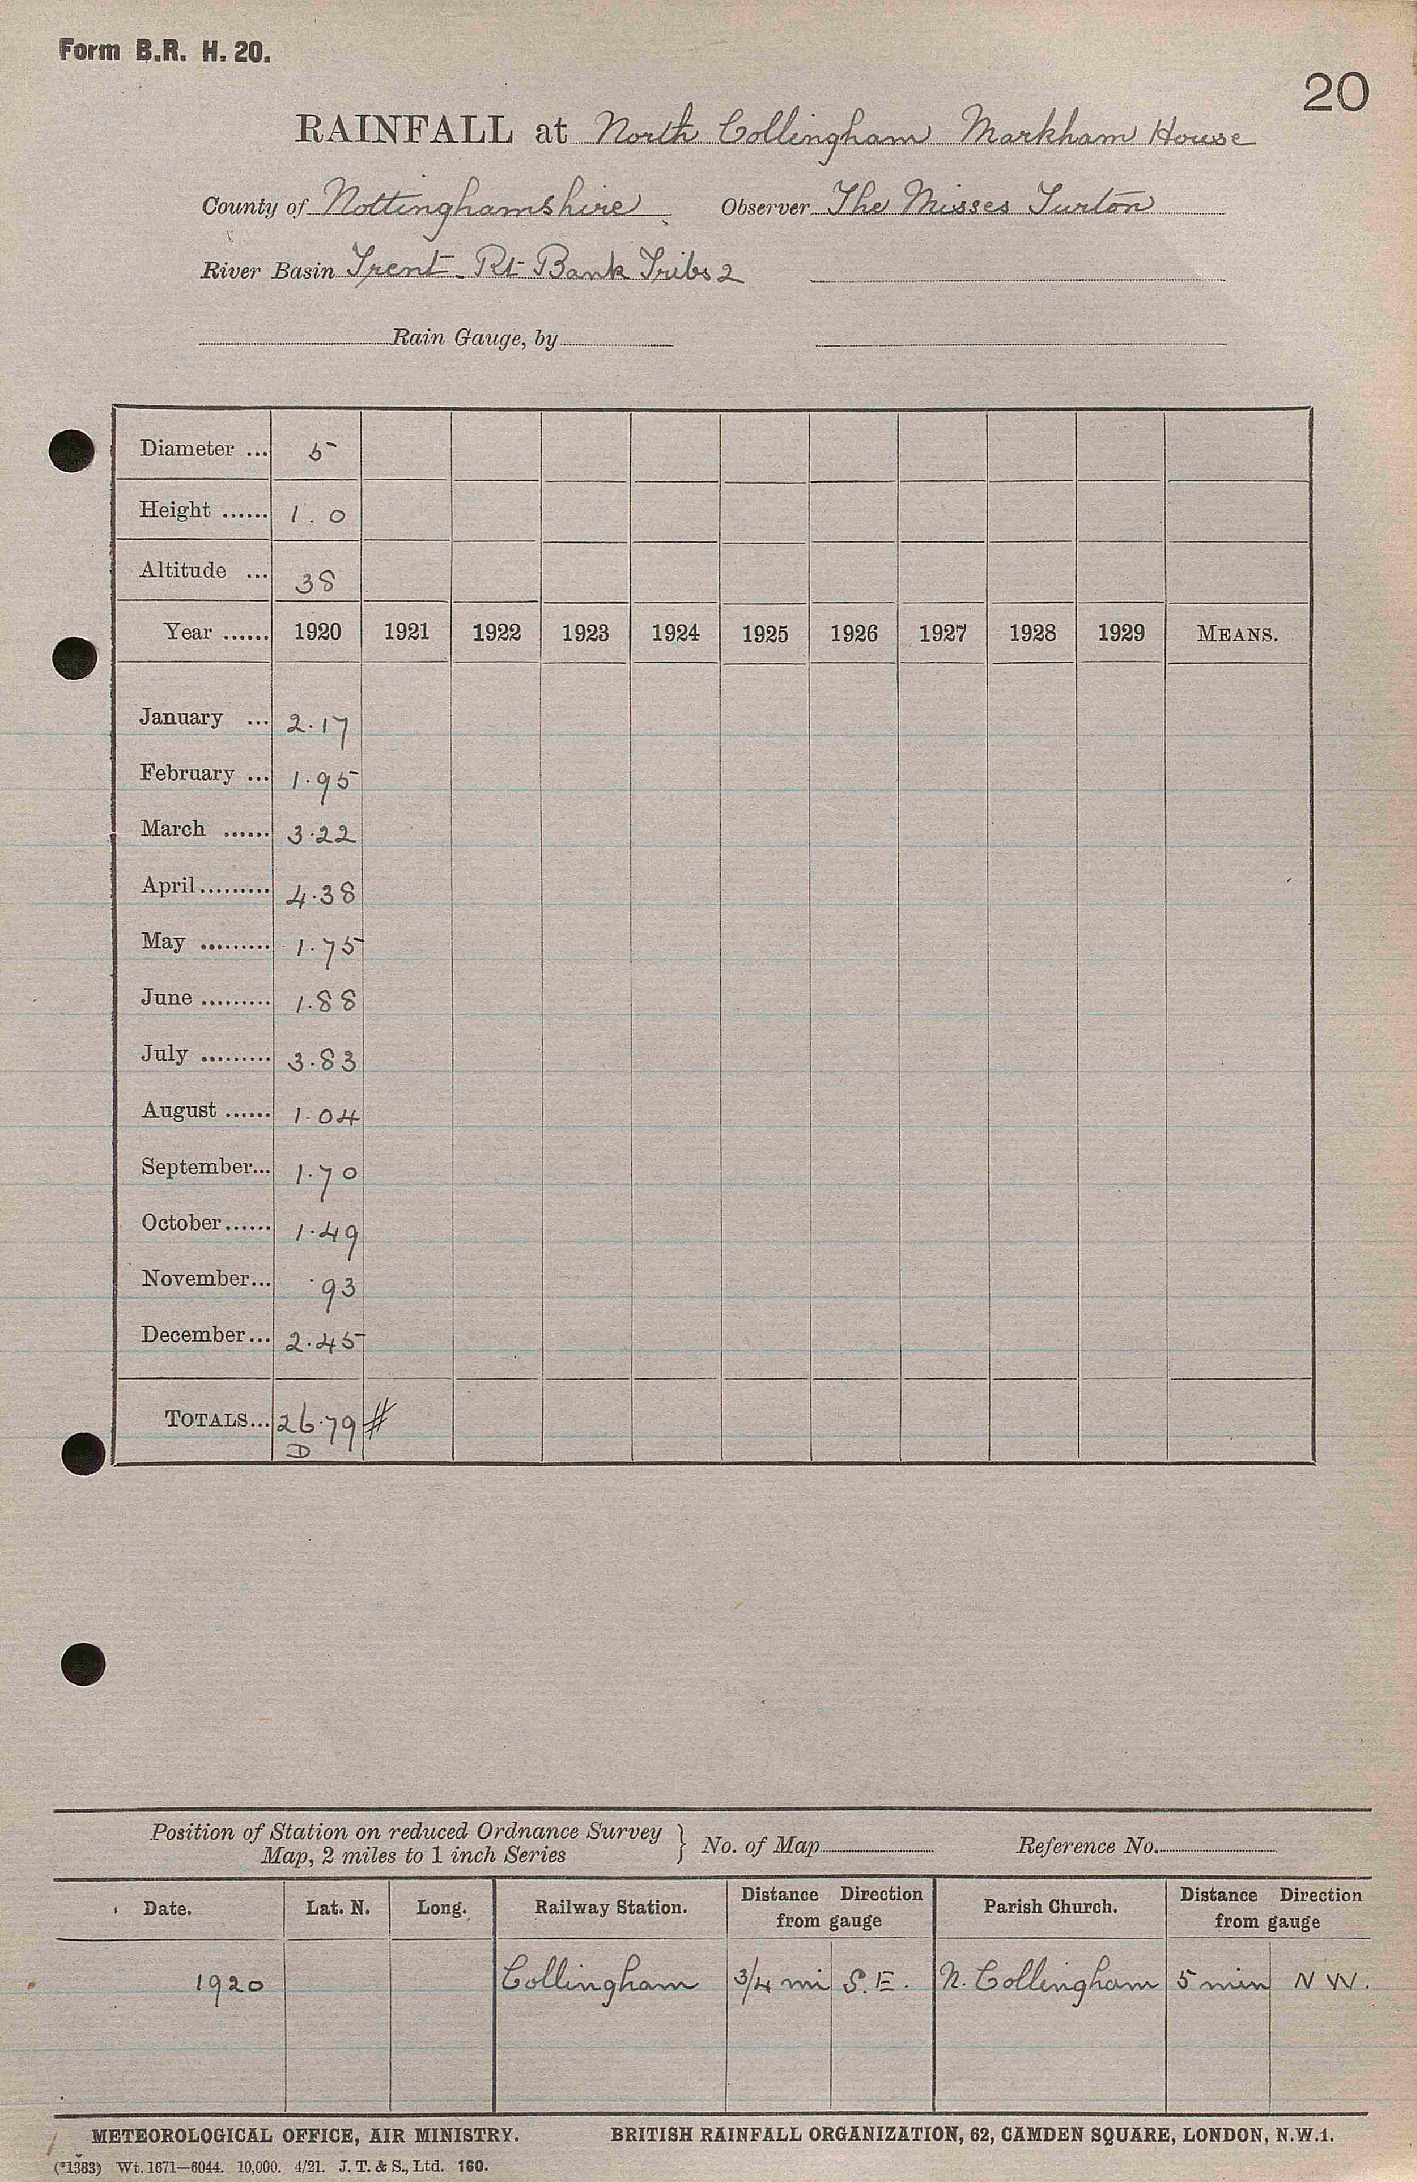 Form B.R. H. 20.
20
RAINFALL at North Collingham Markham House
County of Nottinghamshire Observer The Misses Turton
River Basin Trent Rt Bank Tribs 2
Rain Gauge, by
Diameter ... 5
Height ...... 1.0
Altitude ... 38
Year ...... 1920 1921 1922 1923 1924 1925 1926 1927 1928 1929 MEANS.
January ... 2.17
February ... 1.95
March ...... 3.22
April ......... 4.38
May ......... 1.75
June ......... 1.88
July ......... 3.83
August ...... 1.04
September... 1.70
October ...... 1.49
November... .93
December... 2.45
TOTALS... 26.79 #
D
Position of Station on reduced Ordnance Survey
Map, 2 miles to 1 inch Series } No. of Map Reference No.
Date. Lat. N. Long. Railway Station. Distance Direction from gauge Parish Church. Distance Direction from gauge
1920 Collingham 3/4 mi S.E. N. Collingham 5 min N W.
METEOROLOGICAL OFFICE, AIR MINISTRY. BRITISH RAINFALL ORGANIZATION, 62, CAMDEN SQUARE, LONDON, N.W.1.
(*1383) Wt. 1671—6044. 10,000. 4/21. J. T. & S., Ltd. 160.